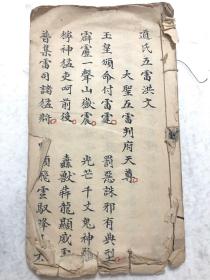 道氏五雷洪文
大聖五雷判府天尊
玉皇頒命付雷霆 罰惡誅邪有典型
霹靂一聲山嶽震 光芒千丈鬼神
獰神猛吏呵前後 獸犇龍顯威
普集雷司諸猛將 飛雲馭降